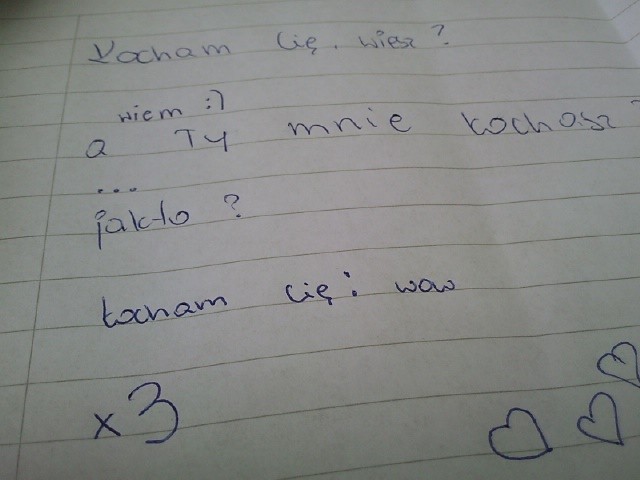 Kocham Cię. wiesz?
wiem :)
a Ty mnie kochasz?
...
jak to?
kocham cię: wow
x3